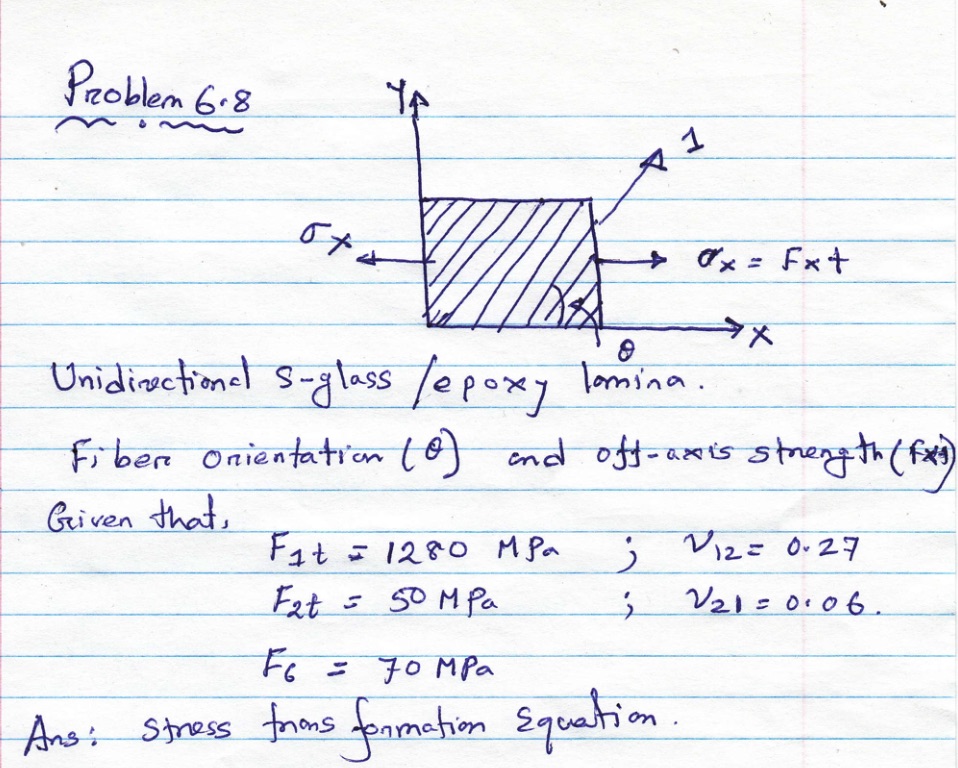 Problem 6.8
Y
1
σx
σx = Fxt
X
θ
Unidirectional S-glass /epoxy lamina.
Fiber orientation (θ) and off-axis strength (Fxt)
Given that,
F1t = 1280 MPa ; ν12 = 0.27
F2t = 50 MPa ; ν21 = 0.06.
F6 = 70 MPa
Ans: Stress transformation Equation.